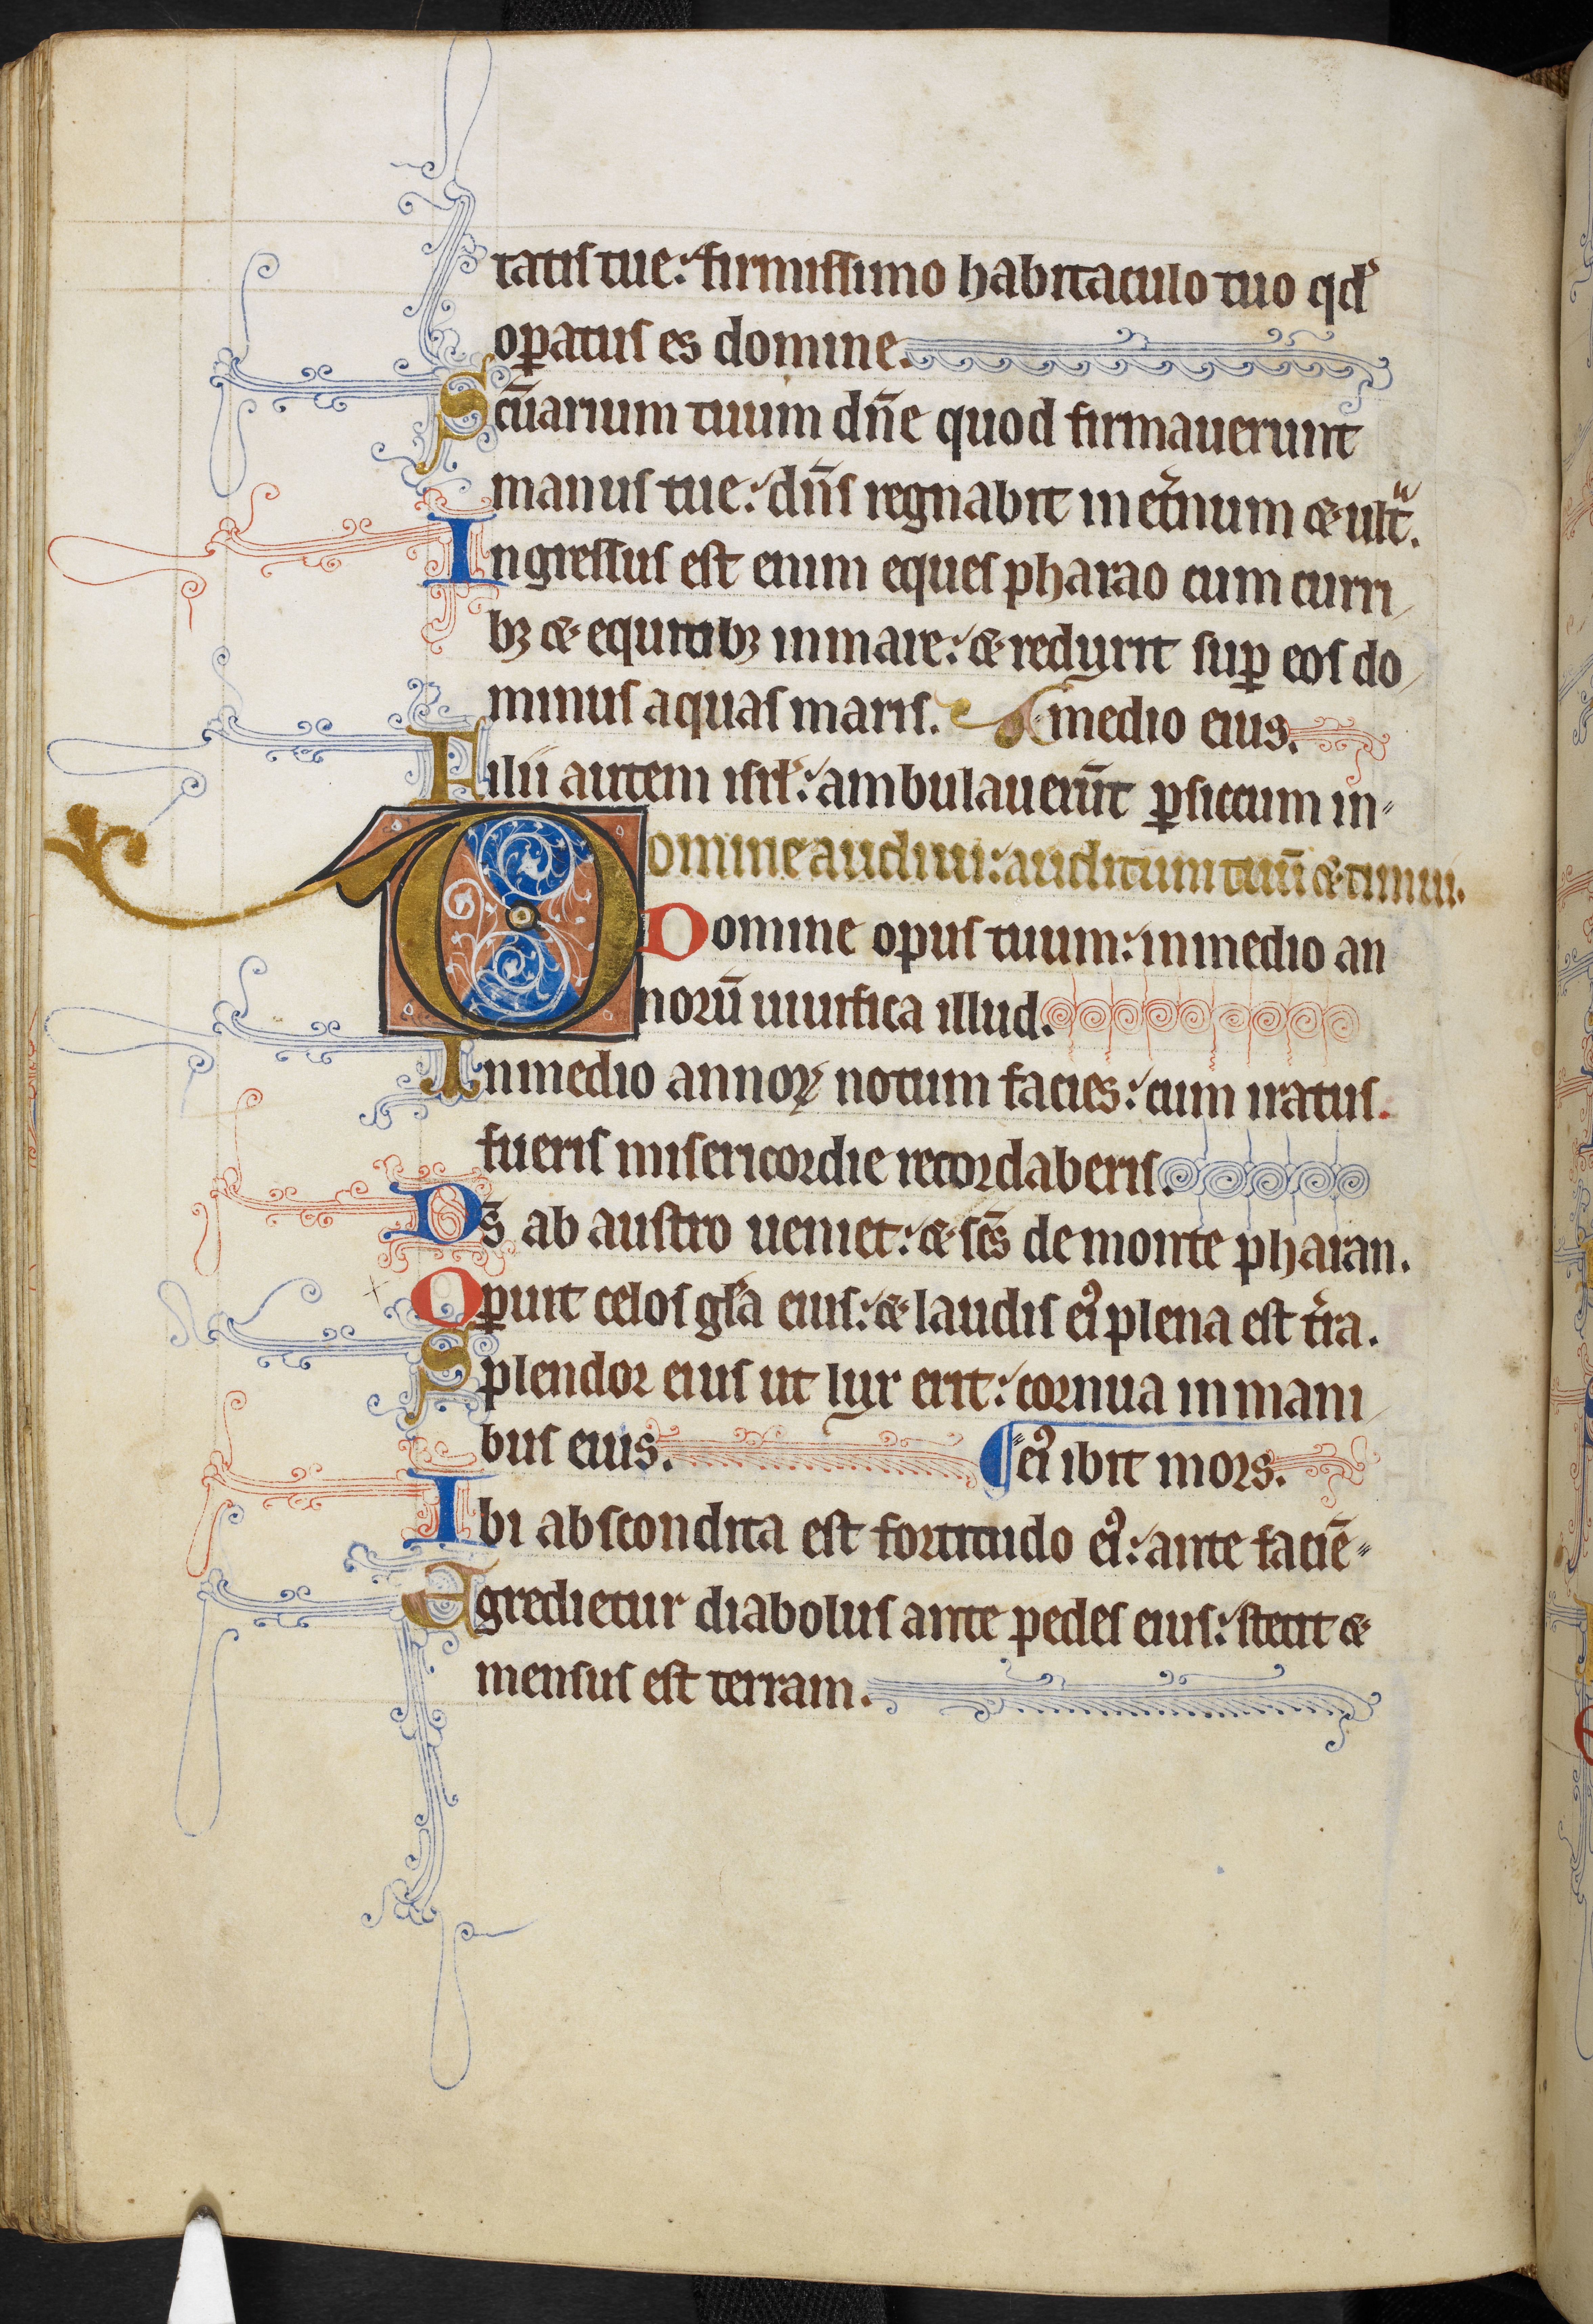 tatis tue: firmissimo habitaculo tuo qd̕
oꝑatus es domine.
Scūarium tuum dn̄e quod firmauerunt
manus tue: dn̄s regnabit in et̕num ⁊ ult͛.
Ingressus est enim eques pharao cum curri
bꝫ ⁊ equitibꝫ in mare: ⁊ reduxit suꝑ eos do
minus aquas maris. medio eius.
Filii autem isrl̕: ambulauerūt ꝑ siccum in
Domine audiui: auditum tuū ⁊ timui.
Domine opus tuum: in medio an
norū uiuifica illud.
In medio annoꝝ notum facies: cum iratus
fueris misericordie recordaberis.
Ds̄ ab austro ueniet: ⁊ sc̄s de monte pharan.
Oꝑuit celos gl̕a eius: ⁊ laudis ei᾽ plena est t̕ra.
Splendor eius ut lux erit: cornua in mani
bus eius. ei᾽ ibit mors.
Ibi abscondita est fortitudo ei᾽: ante faciē
Egredietur diabolus ante pedes eius: stetit ⁊
mensus est terram.